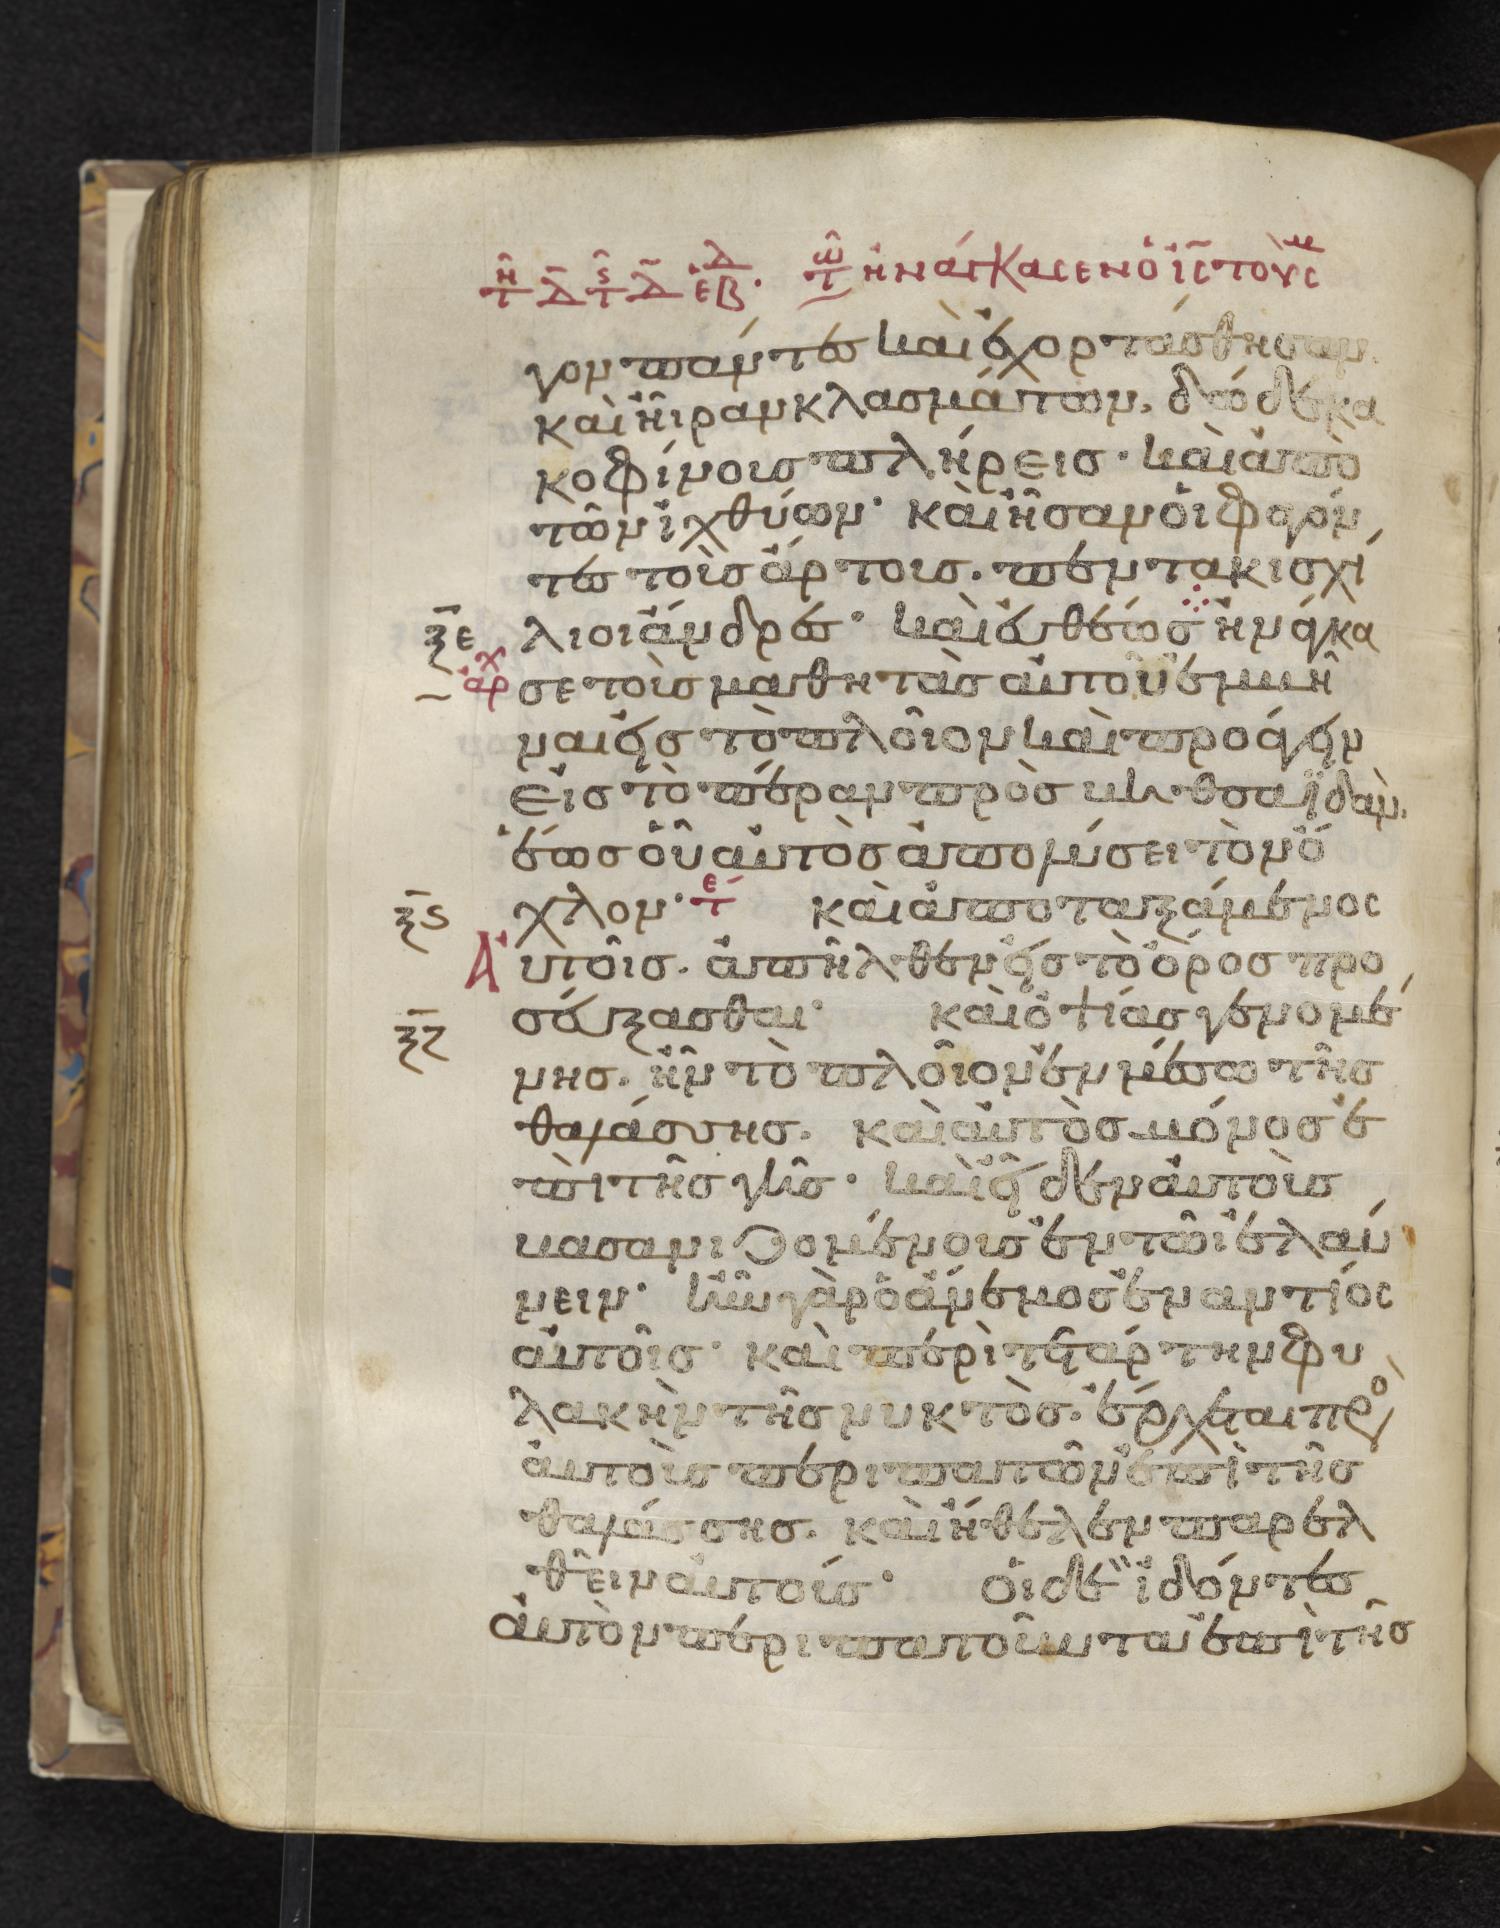 τῆ Δ τ ς Δ ἑβδ. τῶ ἠνάγκασεν ὁ ις τοὺς μ
γον πάντες καὶ ἐχορτάσθησαν.
καὶ ἦιραν κλασμάτων, δώδεκα
κοφίνοις πλήρεις· καὶ ἀπὸ
τῶν ἰχθύων· καὶ ἦσαν οἱ φαγόν
τες τοὺς ἄρτους. πεντακισχί
ξε λιοι ἄνδρες· καὶ εὐθέως ἠνάγκα
ἀρχ σε τοὺς μαθητὰς αὐτοῦ ἐμβῆ
ναι εἰς τὸ πλοῖον καὶ προάγειν
εἰς τὸ πέραν πρὸς βηθσαϊδάν.
ἕως οὗ αὐτὸς ἀπολύσει τὸν ὄ
ξς χλον· τε καὶ ἀποταξάμενος
Αὐτοῖς. ἀπῆλθεν εἰς τὸ ὄρος προ
ξζ σεύξασθαι· καὶ ὀψίας γενομέ
νης. ἦν τὸ πλοῖον ἐν μέσω τῆς
θαλάσσης. καὶ αὐτὸς μόνος ἐ
πὶ τῆς γῆς· καὶ εἶδεν αὐτοὺς
βασανιζομένους ἐν τῶι ἐλαύ
νειν· ἦν γὰρ ὁ ἄνεμος ἐναντίος
αὐτοῖς· καὶ περὶ τετάρτην φυ
λακὴν τῆς νυκτὸς. ἔρχεται πρὸ
αὐτοὺς περιπατῶν ἐπὶ τῆς
θαλάσσης. καὶ ἤθελεν παρελ
θεῖν αὐτούς· οἱ δὲ ἰδόντες
αὐτὸν περιπατοῦντα ἐπὶ τῆς